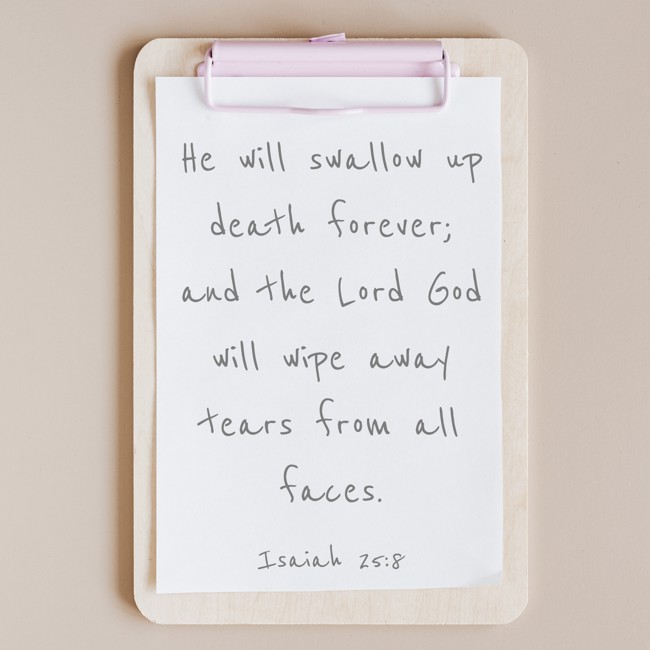 He will swallow up
death forever;
and the Lord God
will wipe away
tears from all
faces.
Isaiah 25:8